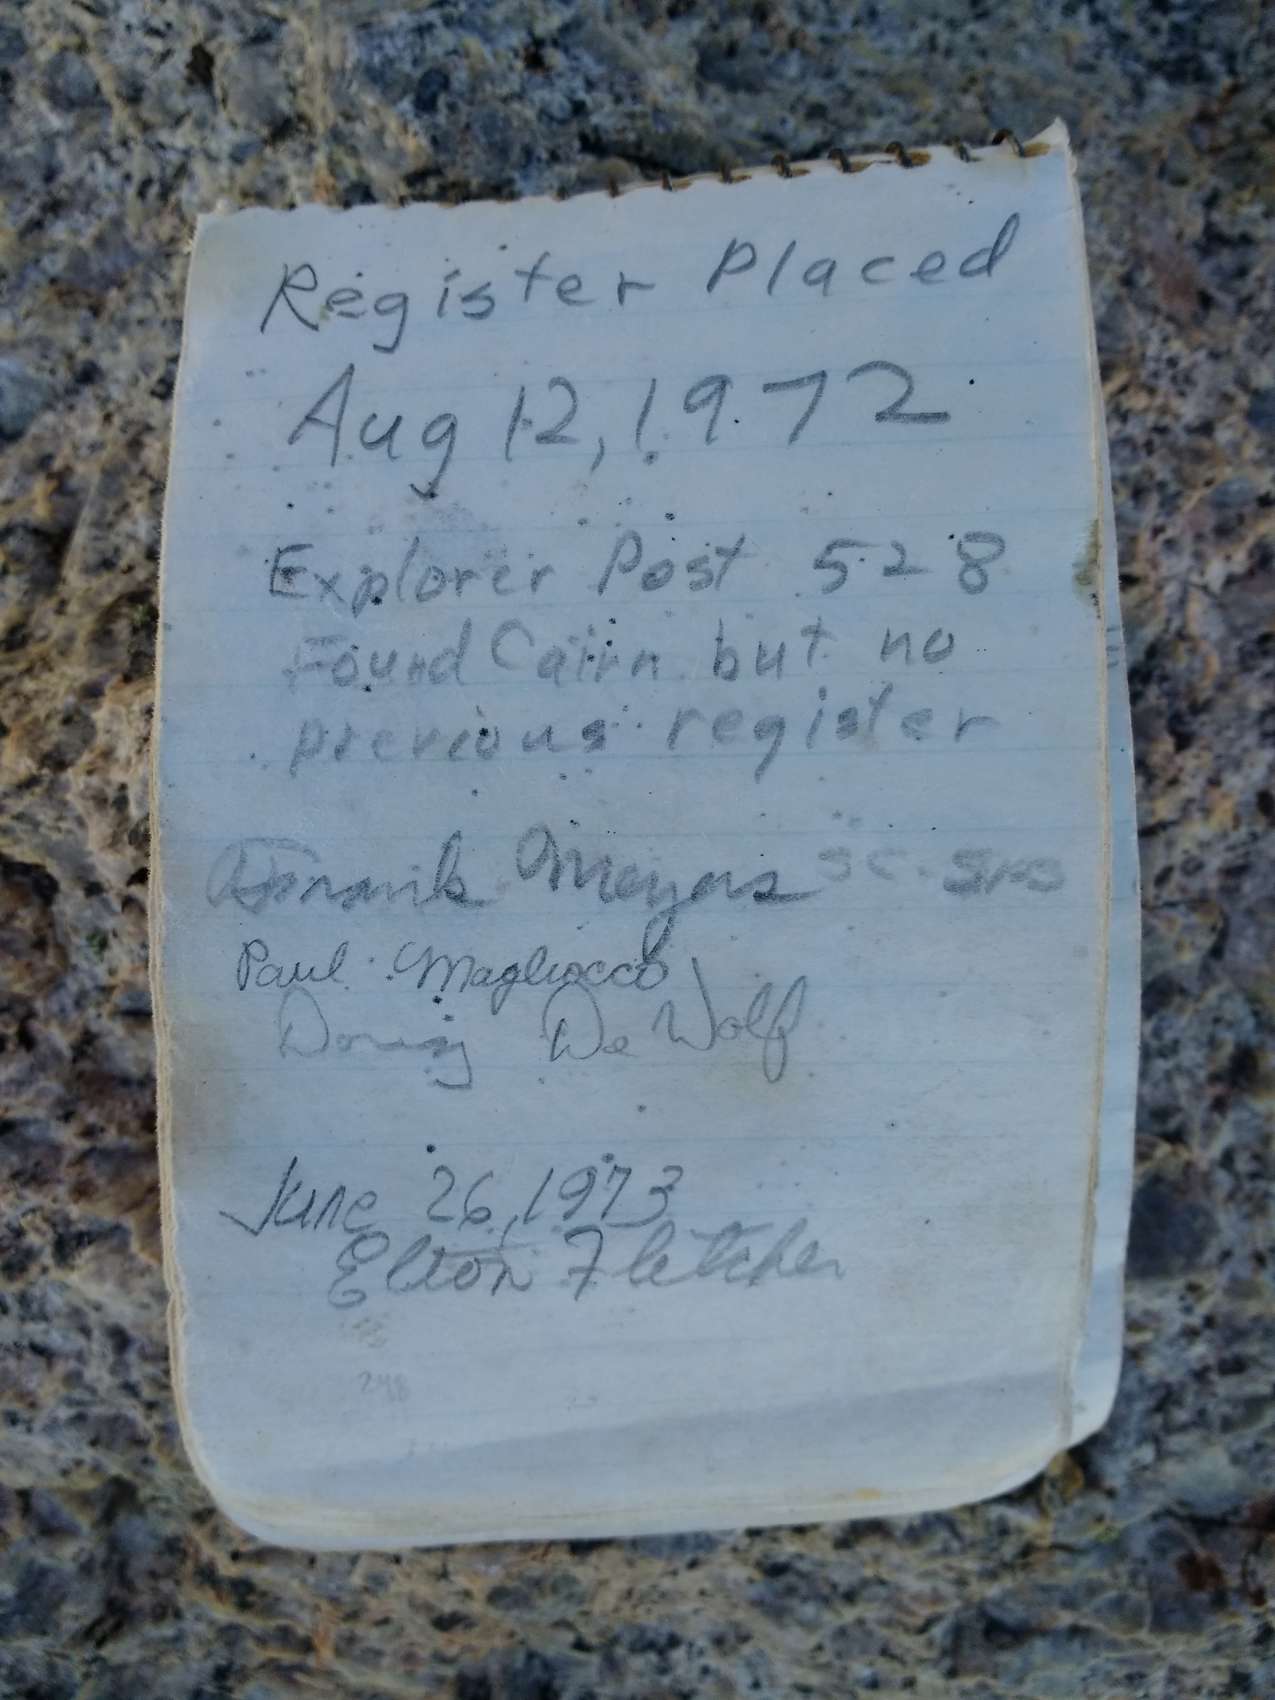 Register Placed
Aug 12, 1972
Explorer Post 528
Found Cairn but no
previous register
Frank Meyers SC-SMS
Paul Magliocco
De Wolf
June 26, 1973
Elton Fletcher